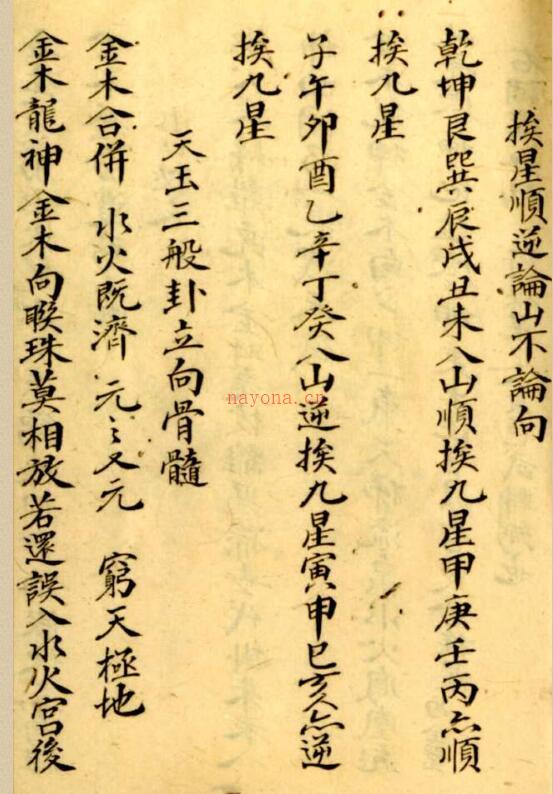 挨星順逆論山不論向
乾坤艮巽辰戌丑未八山順挨九星甲庚壬丙亦順
挨九星
子午卯酉乙辛丁癸八山逆挨九星寅申巳亥亦逆
挨九星
天玉三般卦立向骨髓
金木合併 水火既濟 元〻又元 窮天極地
金木龍神金木向聯珠莫相放若還誤入水火宮後
nayona.cn